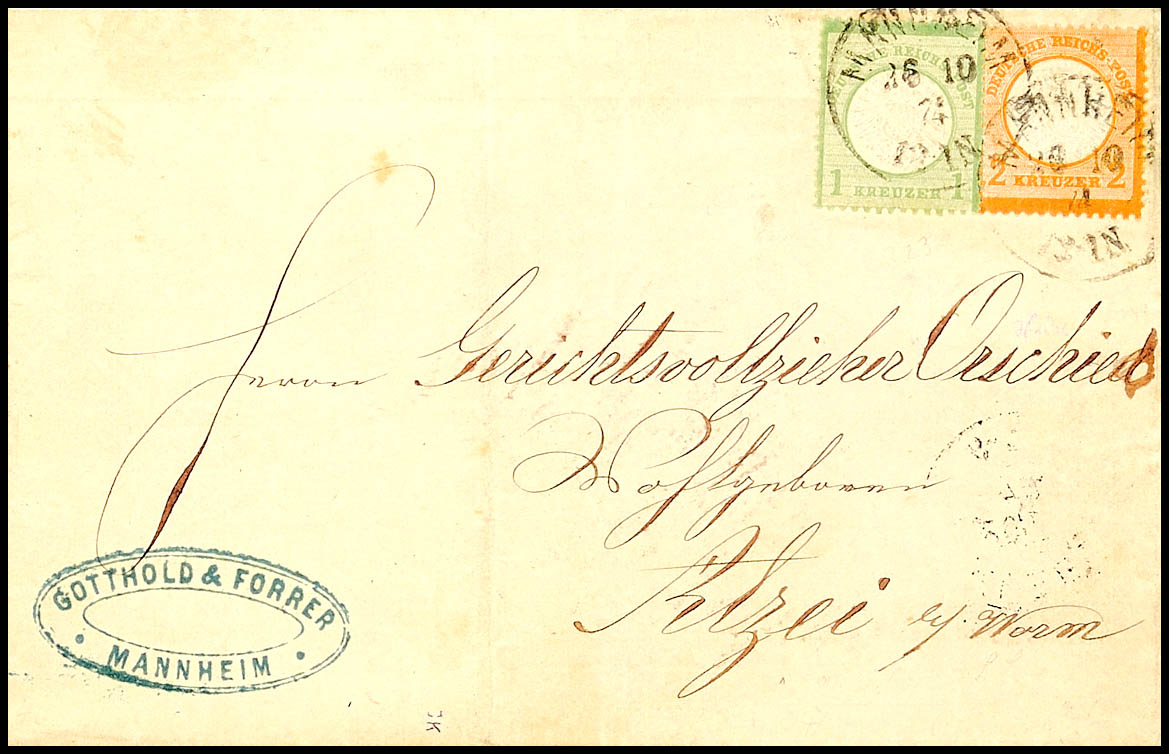 MANNHEIM
26 10
74
IN
DEUTSCHE REICHS-POST
1 KREUZER 1
MANNHEIM
10
74
IN
DEUTSCHE REICHS-POST
2 KREUZER 2
Herrn Gerichtsvollzieher Orschied
Wohlgeboren
Alzei b/ Worm
GOTTHOLD & FORRER
MANNHEIM
JK